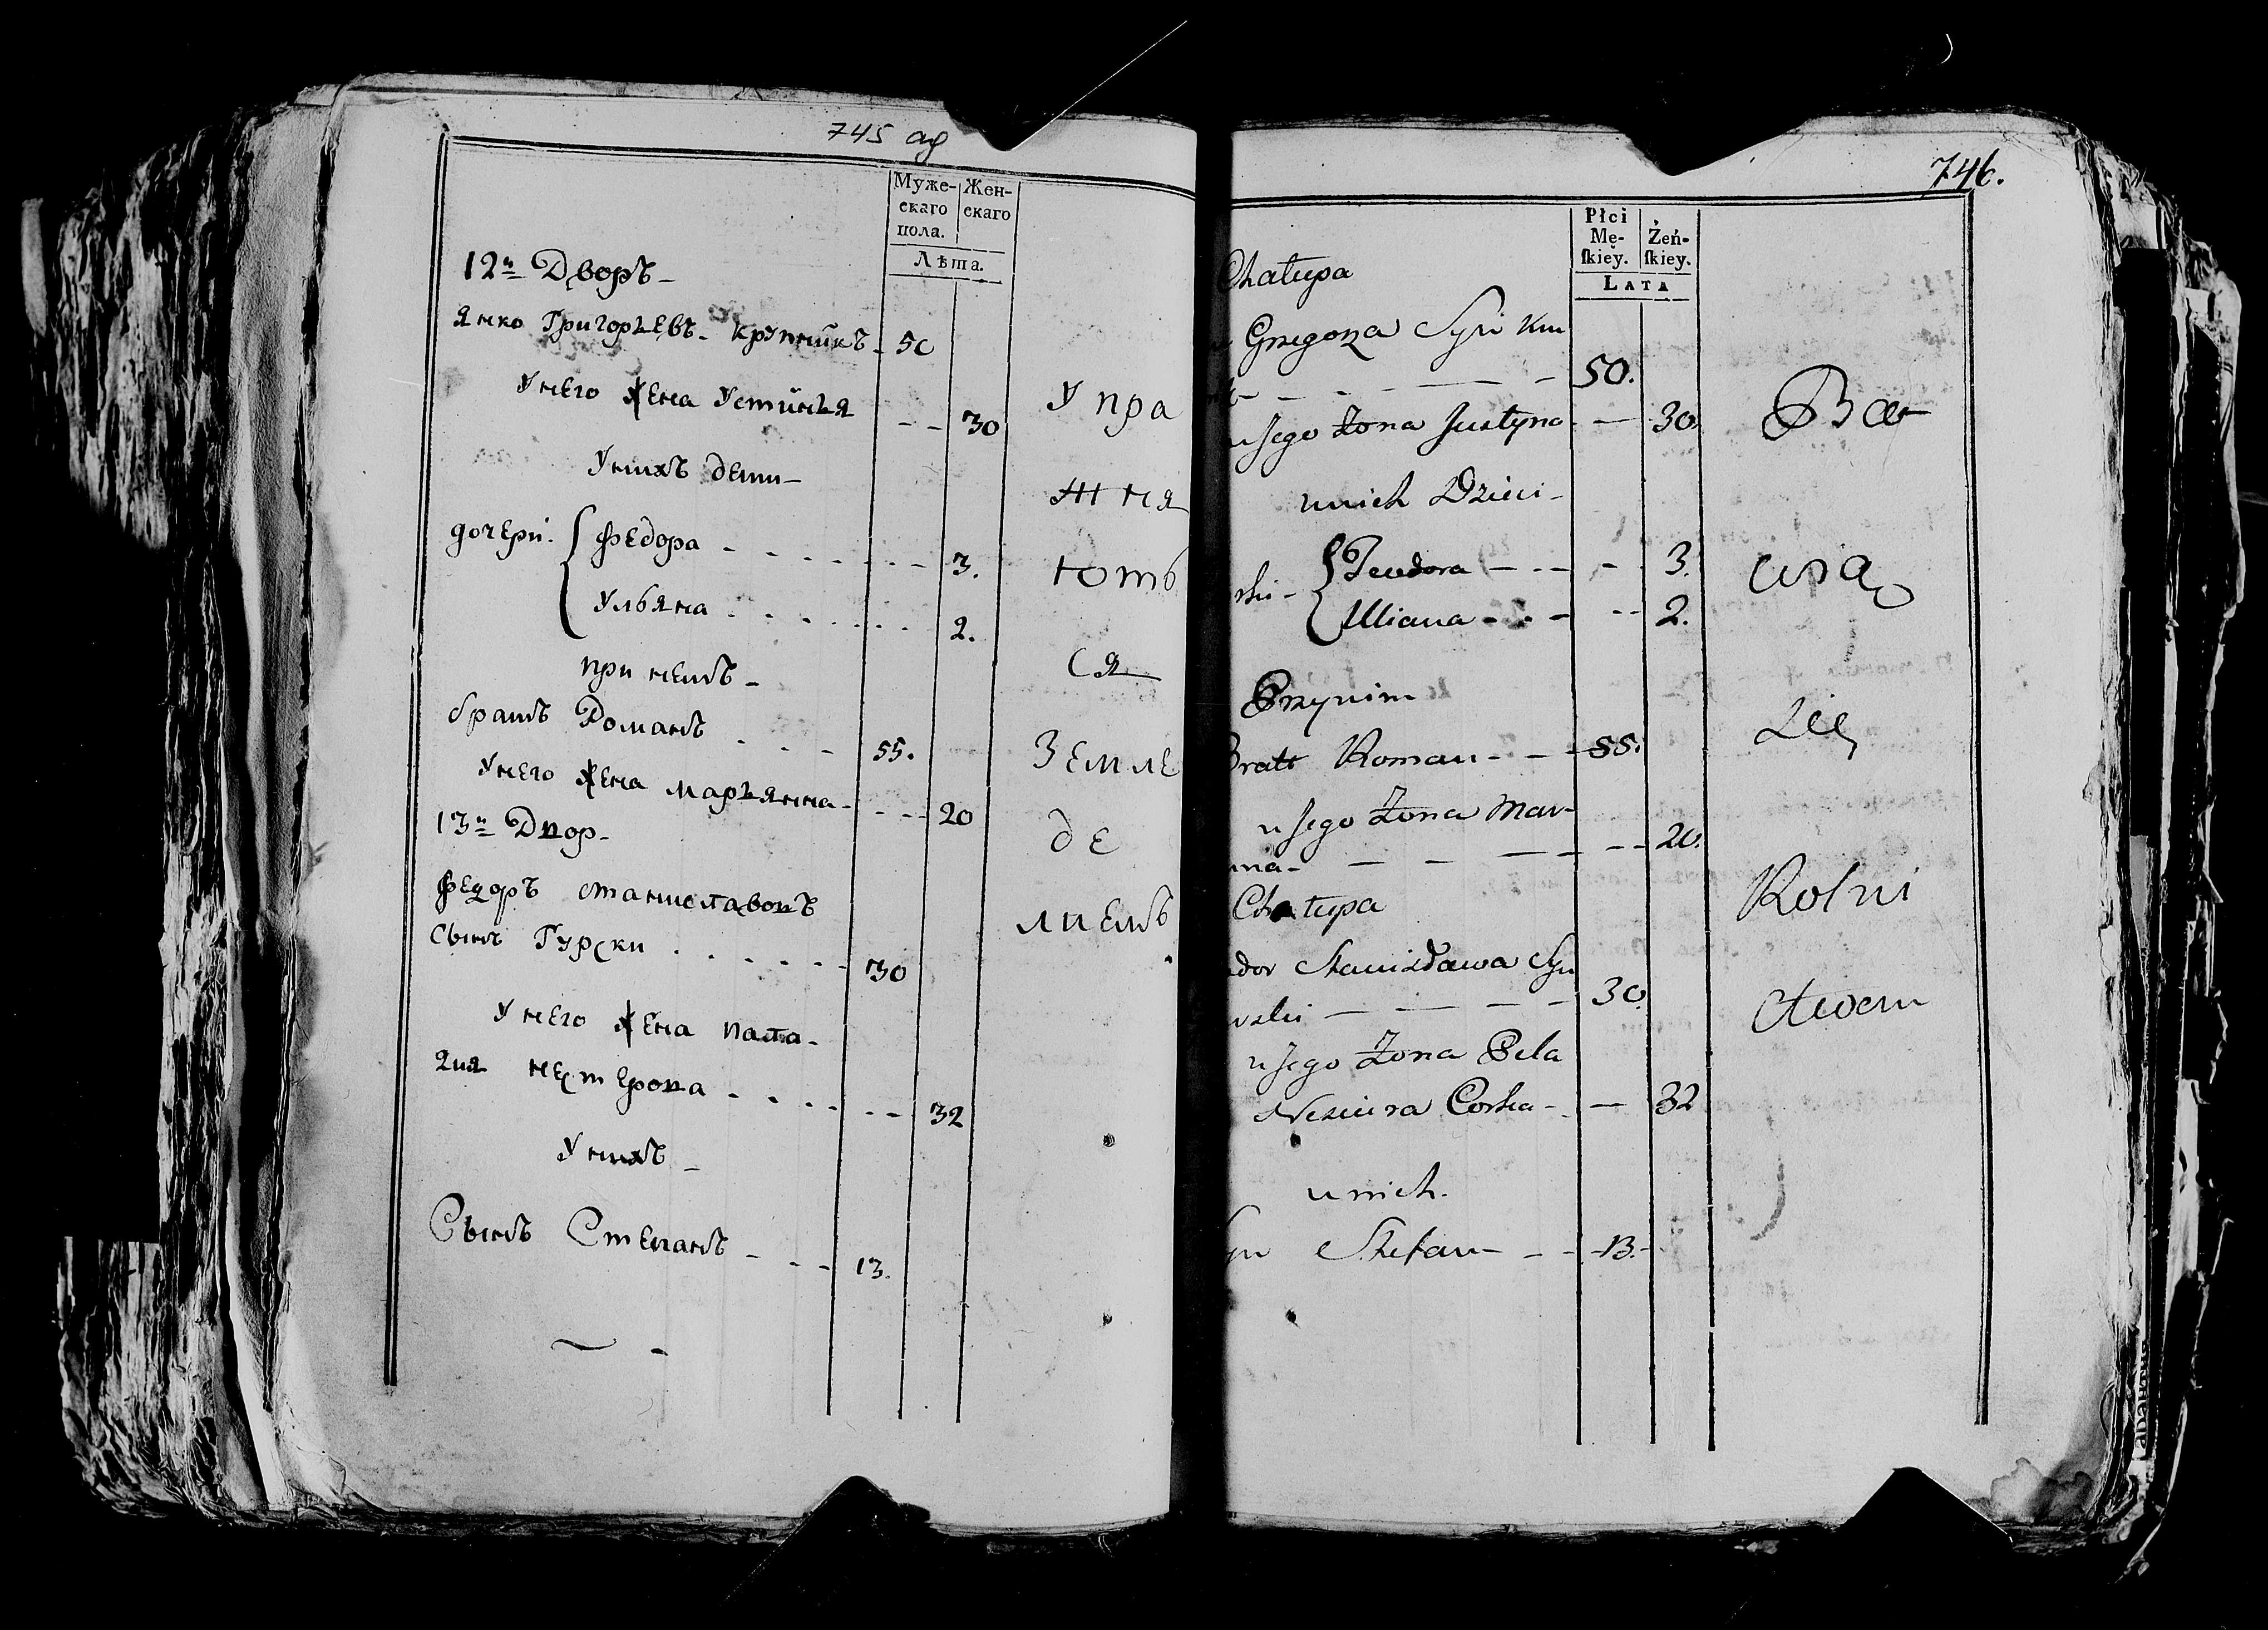 745 об
Муже- Жен-
скаго скаго
пола.
Лѣта.
12й Дворъ
Янко Григорьевъ Крупникъ 50
У него жена Устинья 30
У нихъ дети
дочери: Федора 3.
Ульяна 2.
при немъ
братъ Романъ 55.
У него жена Марьянна 20
13й Двор
Федоръ Станиславовъ
сынъ Гурски 30
У него жена Пала
гия Нестерова 32
У нихъ
Сынъ Степанъ 13.
Упра
жня
ютъ
ся
Земле
де
лиемъ
746.
Płci
Mę- Żeń-
skiey. skiey.
LATA
Chałupa
Grzegorza Syn
50.
u Jego Żona Justyna 30
u nich Dzieci
Teodora 3.
Uliana 2.
Przy nim
Bratt Roman 55.
u Jego Żona Mar-
nna 20.
Chałupa
dor Stanisława Syn
rski 30.
u Jego Żona Pela
Corka 32
u nich.
Syn Stefan 13.
Ba
wią
Się
Rolni
ctwem